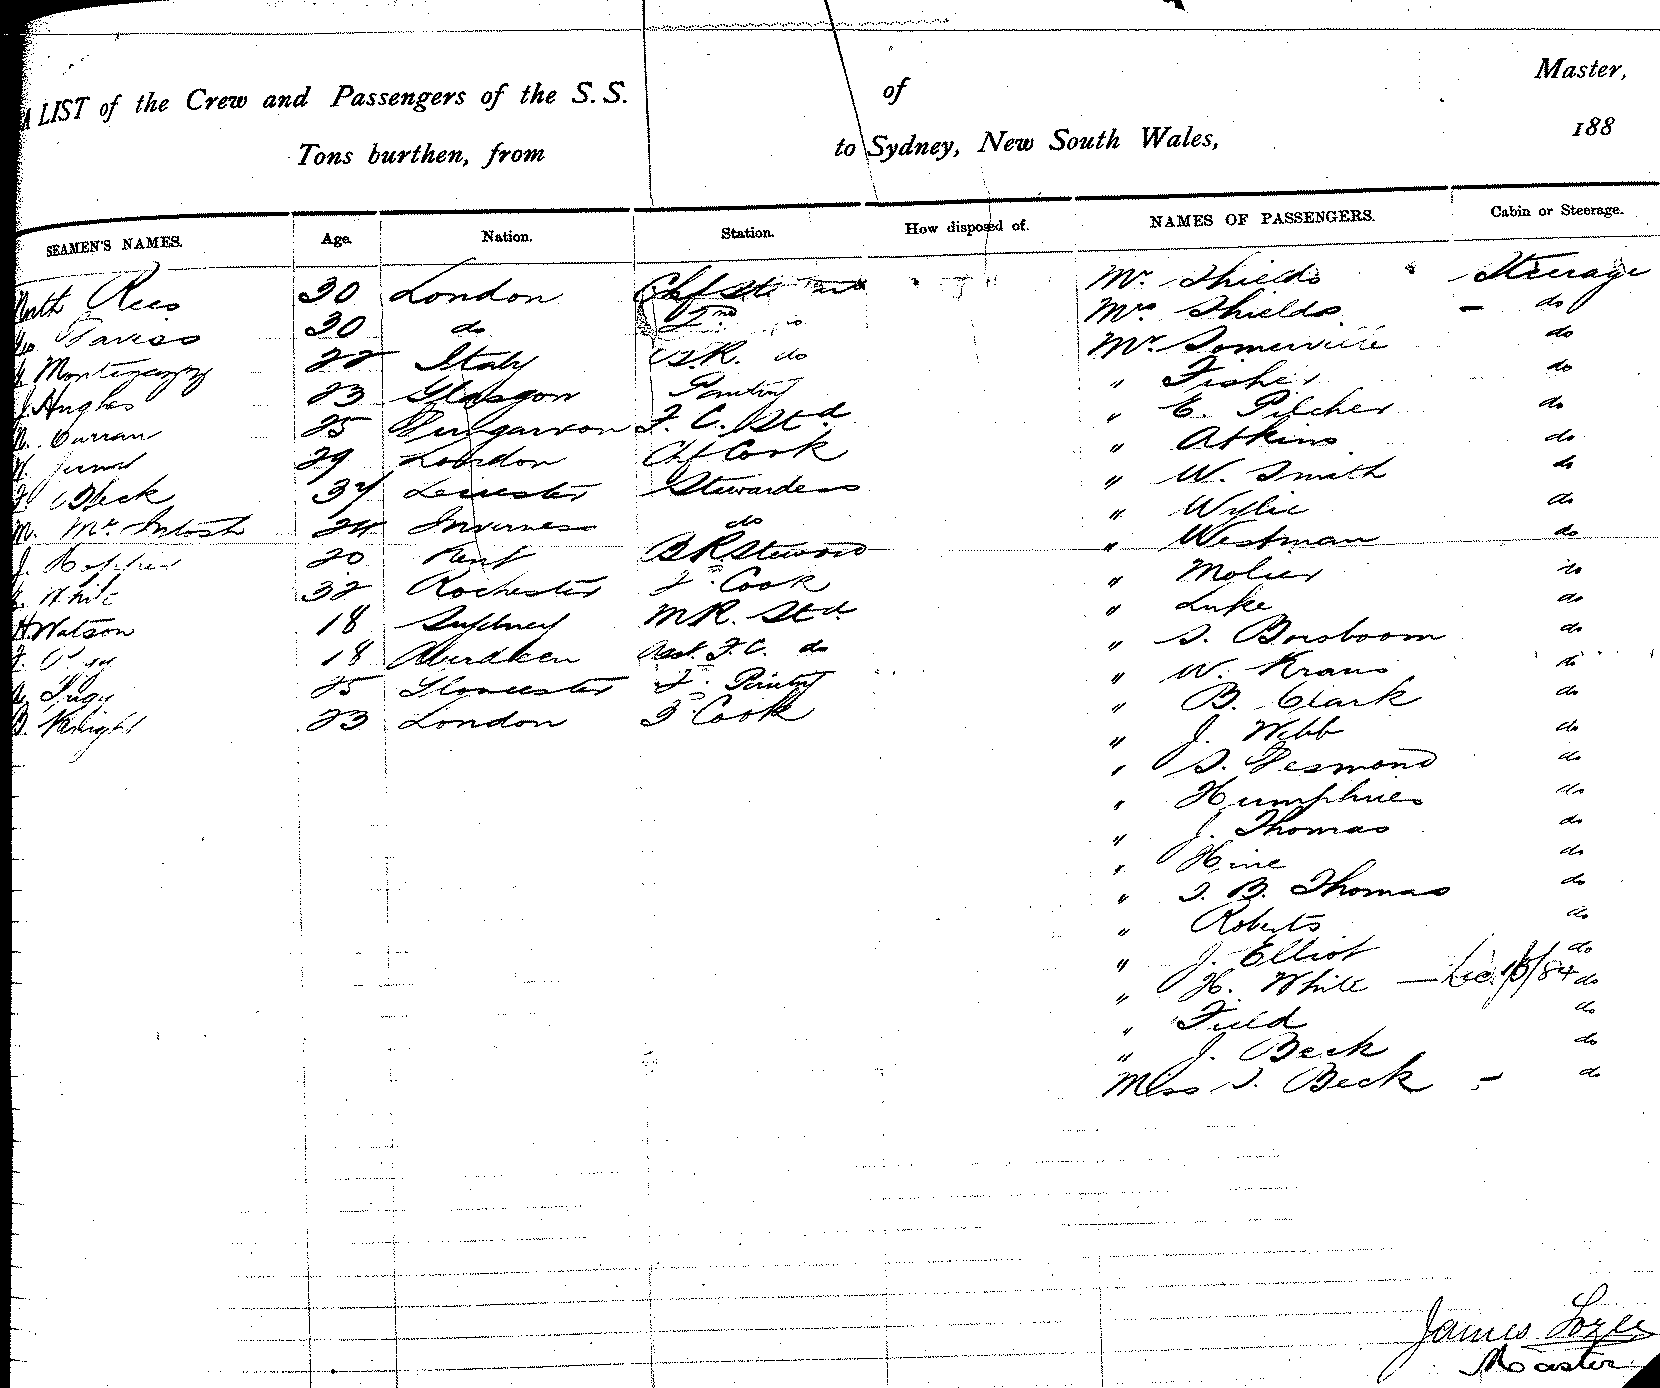 A LIST of the Crew and Passengers of the S.S. of Master,
Tons burthen, from to Sydney, New South Wales, 188
SEAMEN'S NAMES. Age. Nation. Station. How disposed of. NAMES OF PASSENGERS. Cabin or Steerage.
Rees 30 London Chf Mr. Shields Steerage
30 do 2nd Mrs Shields - do
Montegazzy 22 Italy do Mr. Somerville do
J. Angles 23 Glasgow Pantry " Fisher do
Curran 25 Dungarvon F. C. Std " E. Pilcher do
29 London Chf Cook " Atkins do
Beck 37 Leicester Stewardess " W. Smith do
M. McIntosh 24 Inverness do " Wylie do
J. 20 Kent B R Steward " Westman do
White 32 Rochester 2nd Cook " Molier do
H. Watson 18 Sydney M.R. Std " Luke do
18 Aberdeen Asst. F.C. do " S. Borsboom do
25 Gloucester 2nd Pantry " W. Kraus do
B. Knight 23 London 3 Cook " B. Clark do
" J. Webb do
" S. Desmond do
" Humphries do
" J. Thomas do
" Hine do
" S. B. Thomas do
" Roberts do
" J. Elliot do
" H. White — do
" Field do
" J. Beck do
Miss S. Beck - do
James
Master